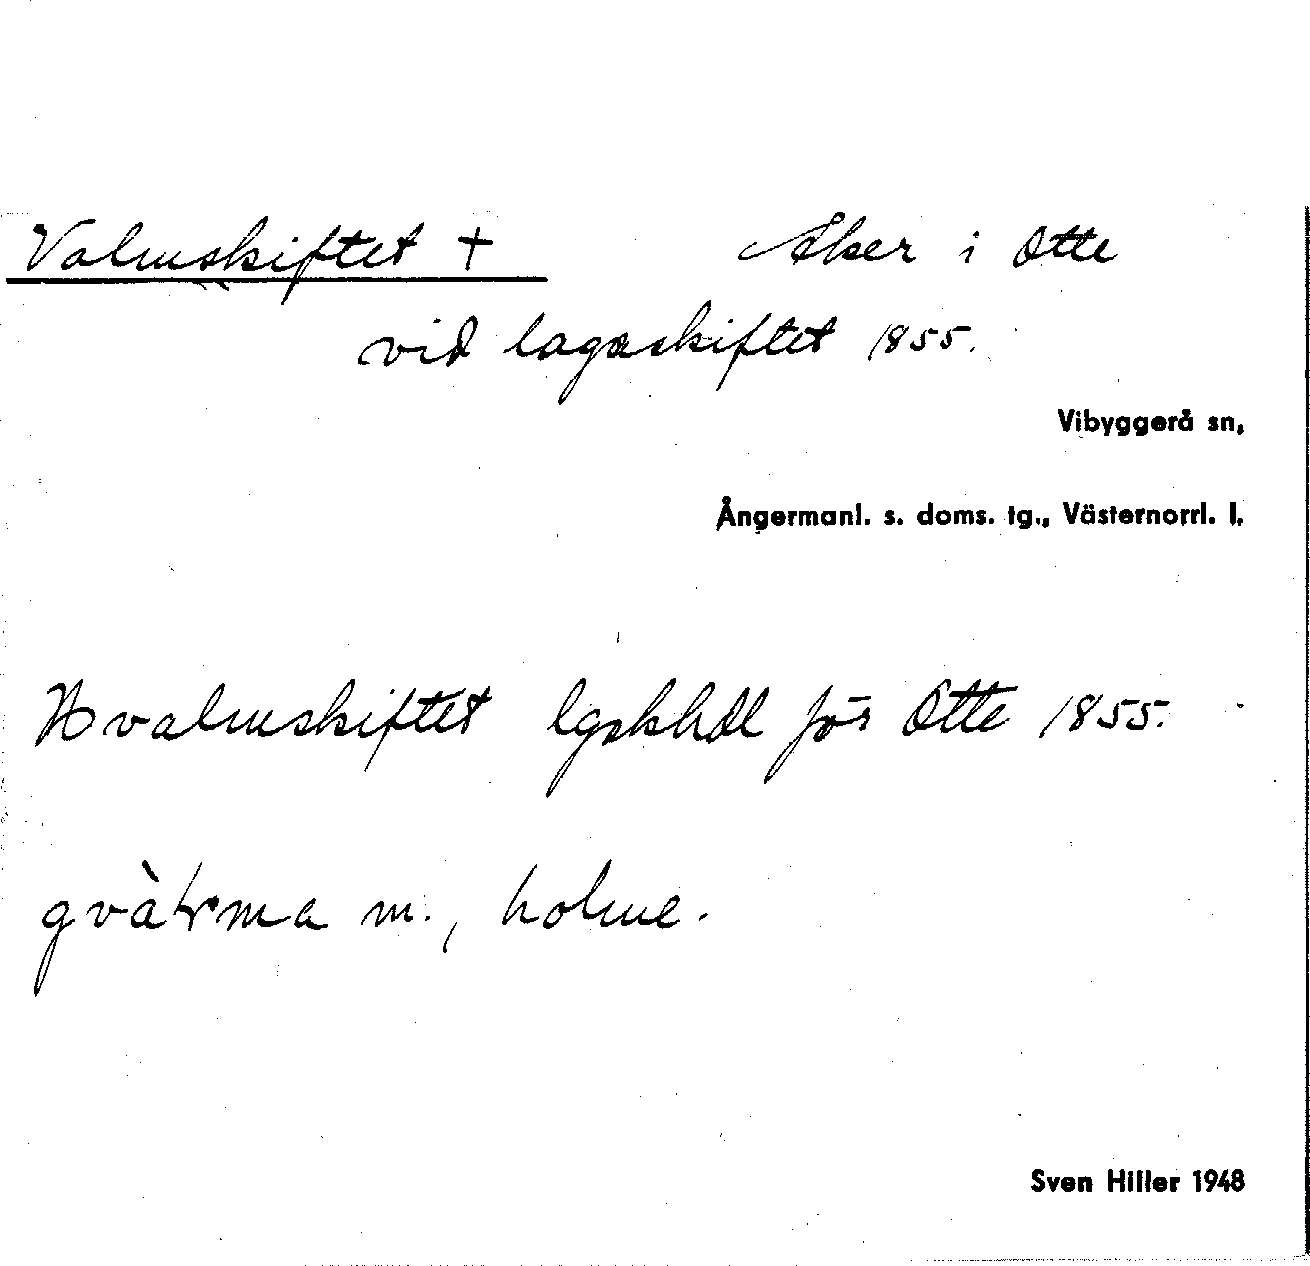 Valmskiftet + Åker i Otte
vid lagaskiftet 1855.
Vibyggerå sn,
Ångermanl. s. doms. tg., Västernorrl. l.
Hvalmskiftet lgskhdl för Otte 1855.
gvàɽma m., holme.
Sven Hiller 1948